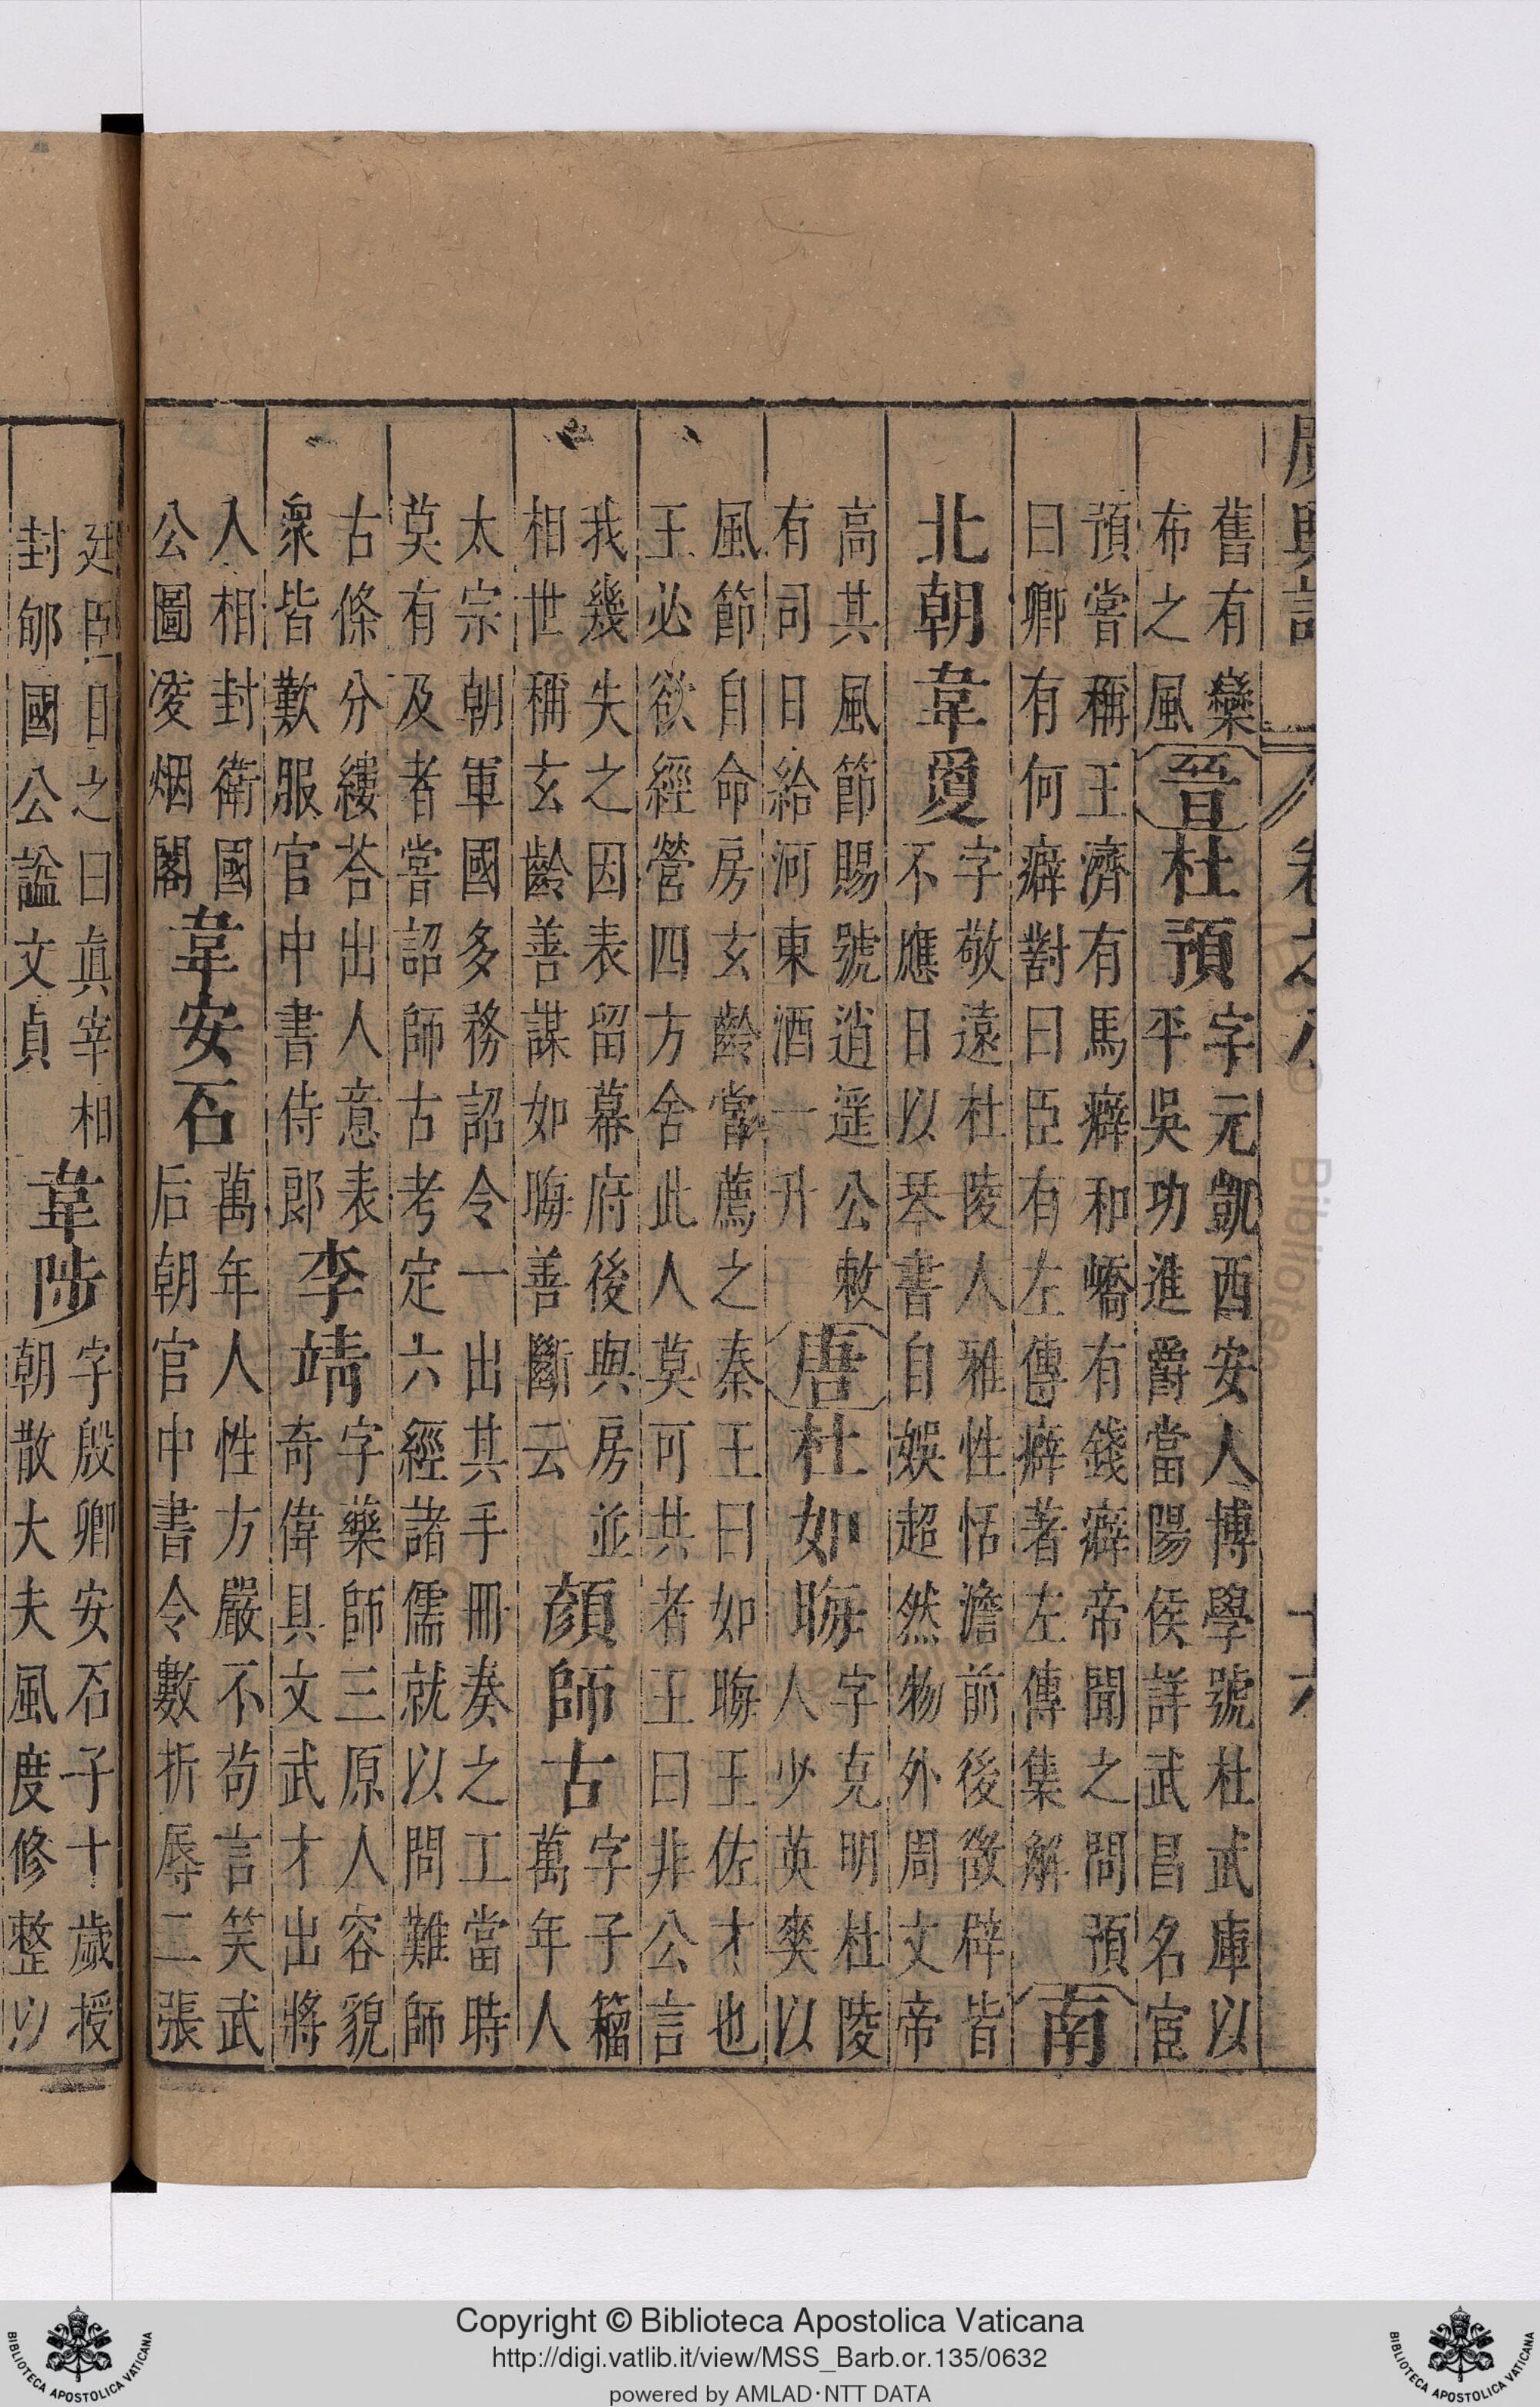 廣輿記 卷之八 十六
舊有欒
布之風
晉
杜預
字元凱西安人博學號杜武庫以
平吳功進爵當陽侯詳武昌名宦
預嘗稱王濟有馬癖和嶠有錢癖帝聞之問預
曰卿有何癖對曰臣有左傳癖著左傳集解
南
北朝韋敻
字敬遠杜陵人雅性恬澹前後徵辟皆
不應日以琴書自娛超然物外周文帝
高其風節賜號逍遙公敕
有司日給河東酒一升
唐
杜如晦
字克明杜陵
人少英爽以
風節自命房玄齡嘗薦之秦王曰如晦王佐才也
王必欲經營四方舍此人莫可共者王曰非公言
我幾失之因表留幕府後與房並
相世稱玄齡善謀如晦善斷云
顏師古
字子籀
萬年人
太宗朝軍國多務詔令一出其手冊奏之工當時
莫有及者嘗詔師古考定六經諸儒就以問難師
古條分縷荅出人意表
眾皆歎服官中書侍郎
李靖
字藥師三原人容貌
奇偉具文武才出將
入相封衛國
公圖凌烟閣
韋安石
萬年人性方嚴不苟言笑武
后朝官中書令數折辱二張
廷臣目之曰真宰相
封郇國公諡文貞
韋陟
字殷卿安石子十歲授
朝散大夫風度修整以
Copyright © Biblioteca Apostolica Vaticana
http://digi.vatlib.it/view/MSS_Barb.or.135/0632
powered by AMLAD·NTT DATA
BIBLIOTECA APOSTOLICA VATICANA
BIBLIOTECA APOSTOLICA VATICANA